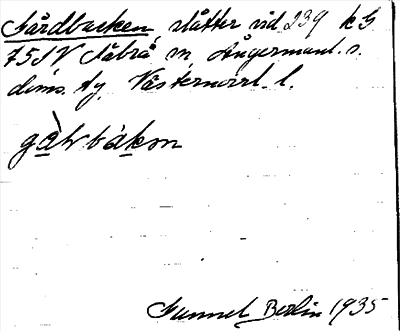 Gårdbacken, slåtter vid 239 k G
75 SV Säbrå sn, Ångermanl. s.
doms. Ag. Västernorrl. l.
gàɭvbákɘn
Gunnel Berlin 1935